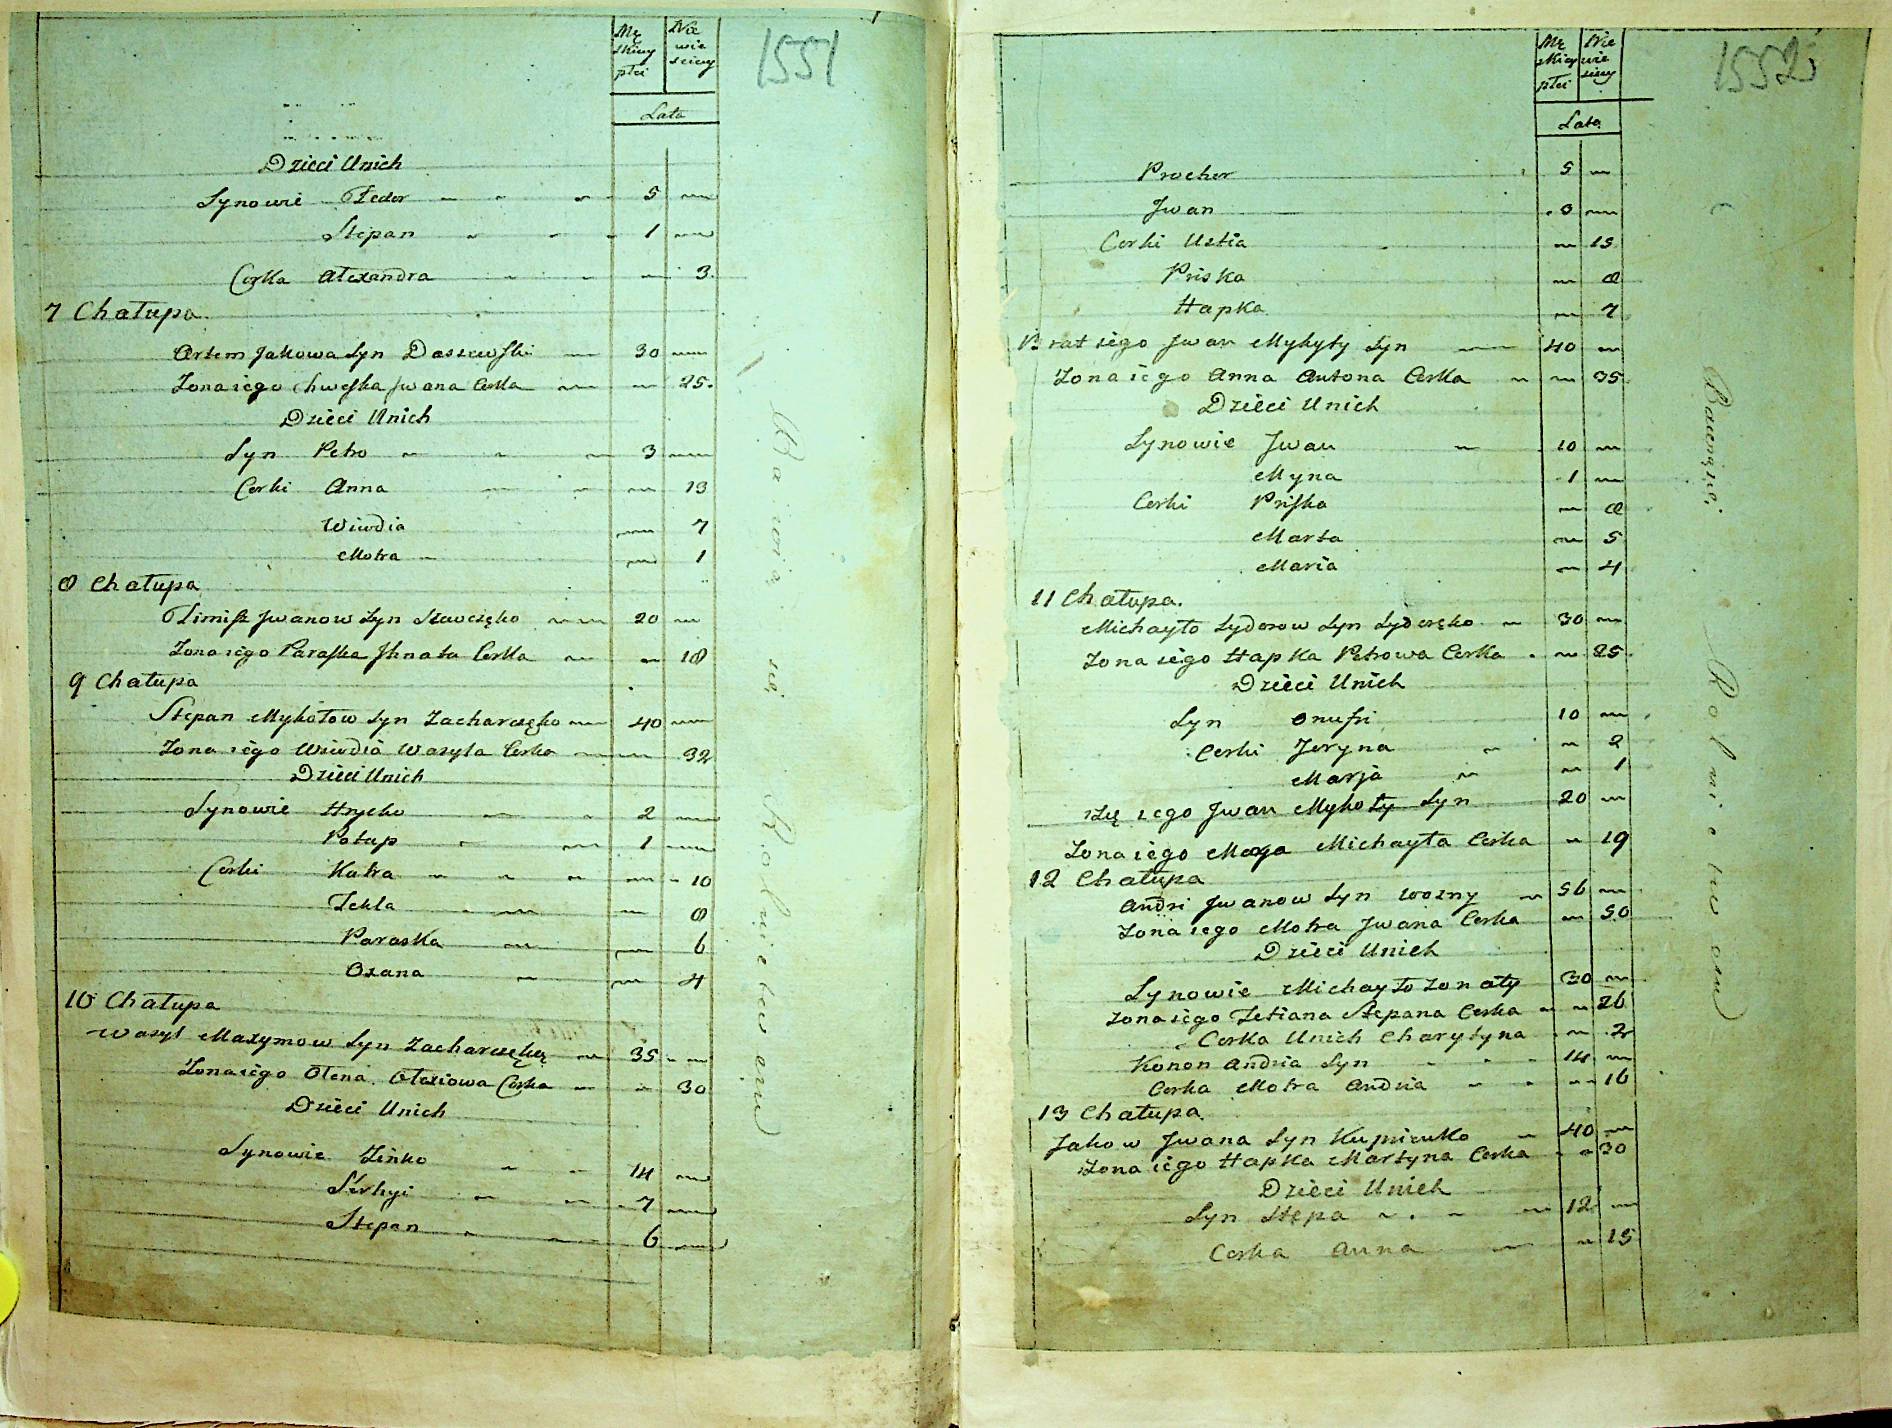 Mę Nie
skiey wie
płci sciey
1551
Lata
Dzieci Unich
Synowie Fedor 5
Stepan 1
Corka Alexandra 3
7 Chałupa
Artem Jakowa Syn Daszewski 30
Zona iego Chweska Jwana Corka 25
Dzieci Unich
Syn Petro 3
Corki Anna 13
Wiwdia 7
Motra 1
8 Chałupa
Timisz Jwanow Syn 20
Zona iego Paraska Jhnata Corka 18
9 Chałupa
Stepan Mykołow Syn Zacharczęko 40
Zona iego Wiwdia Wasyla Corka 32
Dzieci Unich
Synowie Hrycko 2
Potap 1
Corki Katra 10
Tekla 8
Paraska 6
Oxana 4
10 Chałupa
Wasyl Maxymow Syn 35
Zona iego Ołena Ołexiowa Corka 30
Dzieci Unich
Synowie Zinko 14
Serhyi 7
Stepan 6
Bawią się Rolnictwem
Mę Nie
skiey wie
płci sciey
1552
Lata
Procher 5
Jwan 3
Corki Ustia 15
Priska 8
Hapka 7
Brat iego Jwan Mykyty Syn 40
Zona iego Anna Antona Corka 35
Dzieci Unich
Synowie Jwan 10
Myna 1
Corki Priska 8
Marta 5
Maria 4
11 Chałupa
Michayło Sydorow Syn Sydoręko 30
Zona iego Hapka Petrowa Corka 25
Dzieci Unich
Syn Onufri 10
Corki Jeryna 2
Marja 1
Zię iego Jwan Mykoły Syn 20
Zona iego Michayła Corka 19
12 Chałupa
Andri Jwanow Syn Wozny 56
Zona iego Motra Jwana Corka 50
Dzieci Unich
Synowie Michayło Zonaty 30
Zona iego Tetiana Stepana Corka 26
Corka Unich Charytyna 2
Konon Andria Syn 14
Corka Motra Andria 16
13 Chałupa
Jakow Jwana Syn 40
Zona iego Hapka Martyna Corka 30
Dzieci Unich
Syn Stepa 12
Corka Anna 15
Rolnictwem